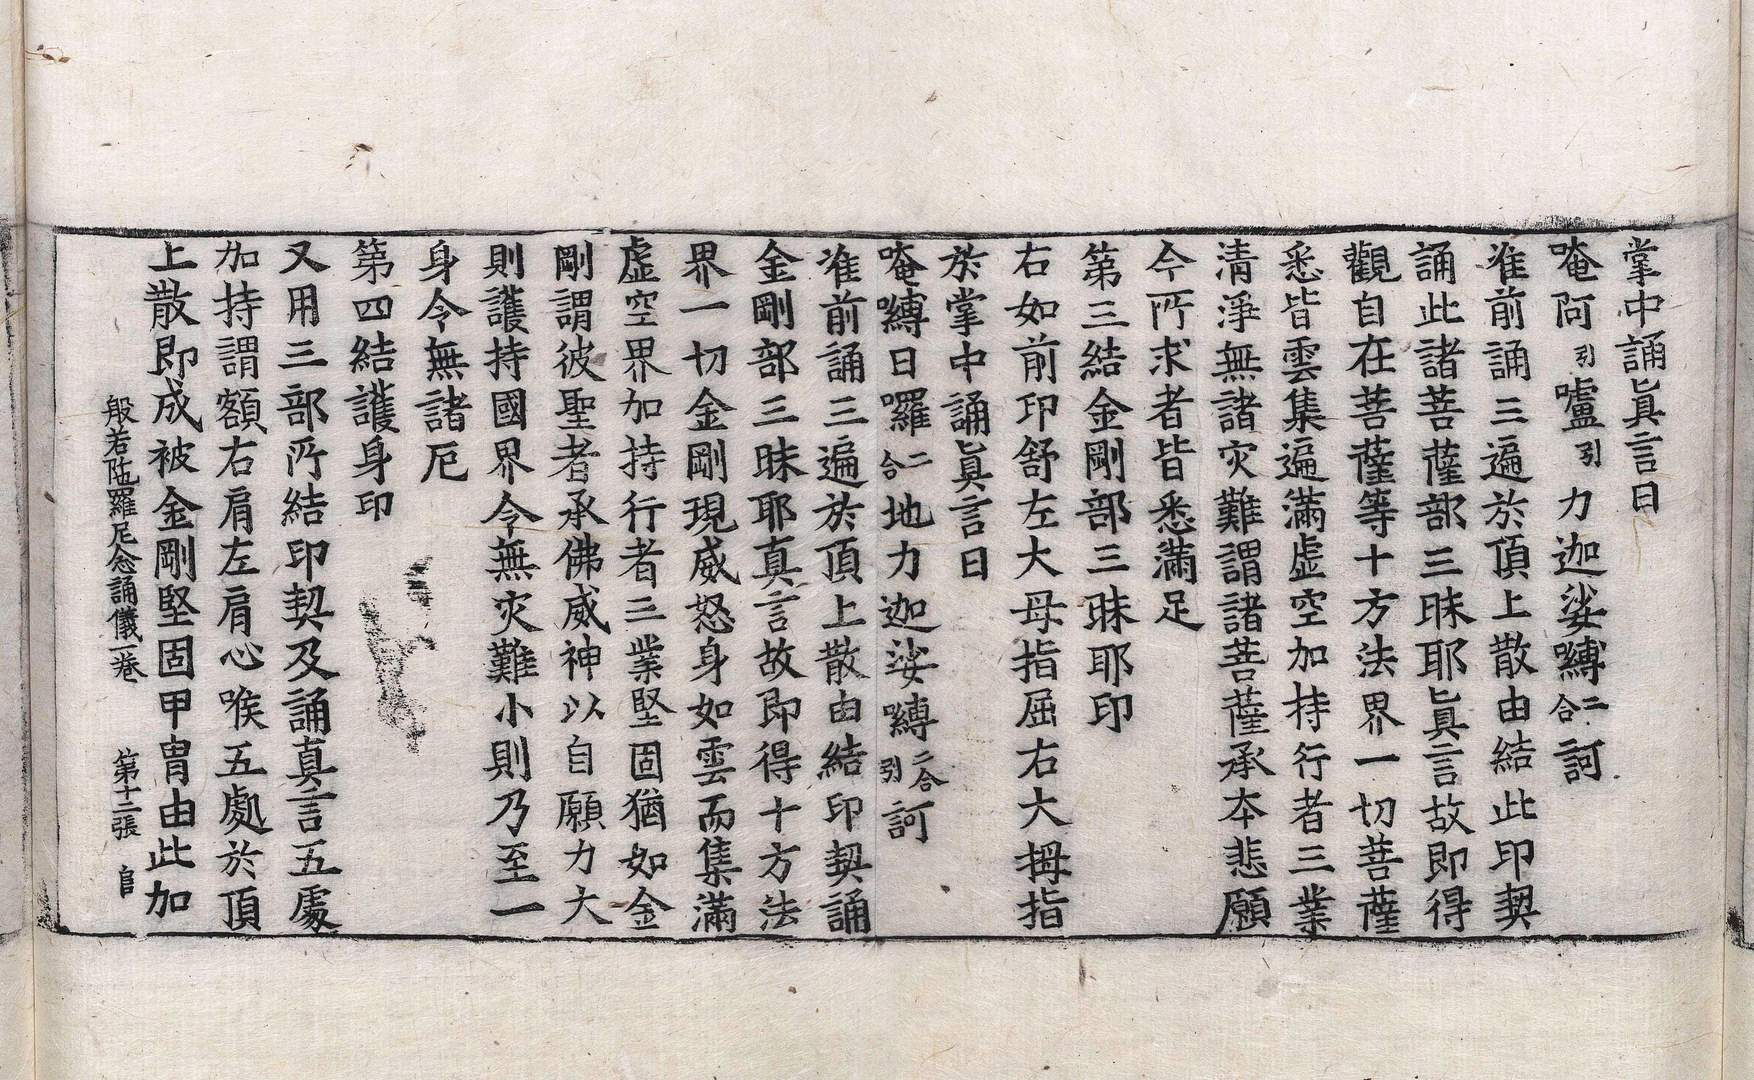 掌中誦眞言曰
唵阿引嚧引力迦娑嚩二合訶
准前誦三遍於頂上散由結此印契
誦此諸菩薩部三昧耶眞言故即得
觀自在菩薩等十方法界一切菩薩
悉皆雲集遍滿虛空加持行者三業
清淨無諸灾難謂諸菩薩承本悲願
令所求者皆悉滿足
第三結金剛部三昧耶印
右如前印舒左大母指屈右大拇指
於掌中誦眞言曰
唵嚩日囉二合地力迦娑嚩二合引訶
准前誦三遍於頂上散由結印契誦
金剛部三昧耶真言故即得十方法
界一切金剛現威怒身如雲而集滿
虛空界加持行者三業堅固猶如金
剛謂彼聖者承佛威神以自願力大
則護持國界令無灾難小則乃至一
身令無諸厄
第四結護身印
又用三部所結印契及誦真言五處
加持謂額右肩左肩心喉五處於頂
上散即成被金剛堅固甲胄由此加
般若陁羅尼念誦儀一卷 第十二張